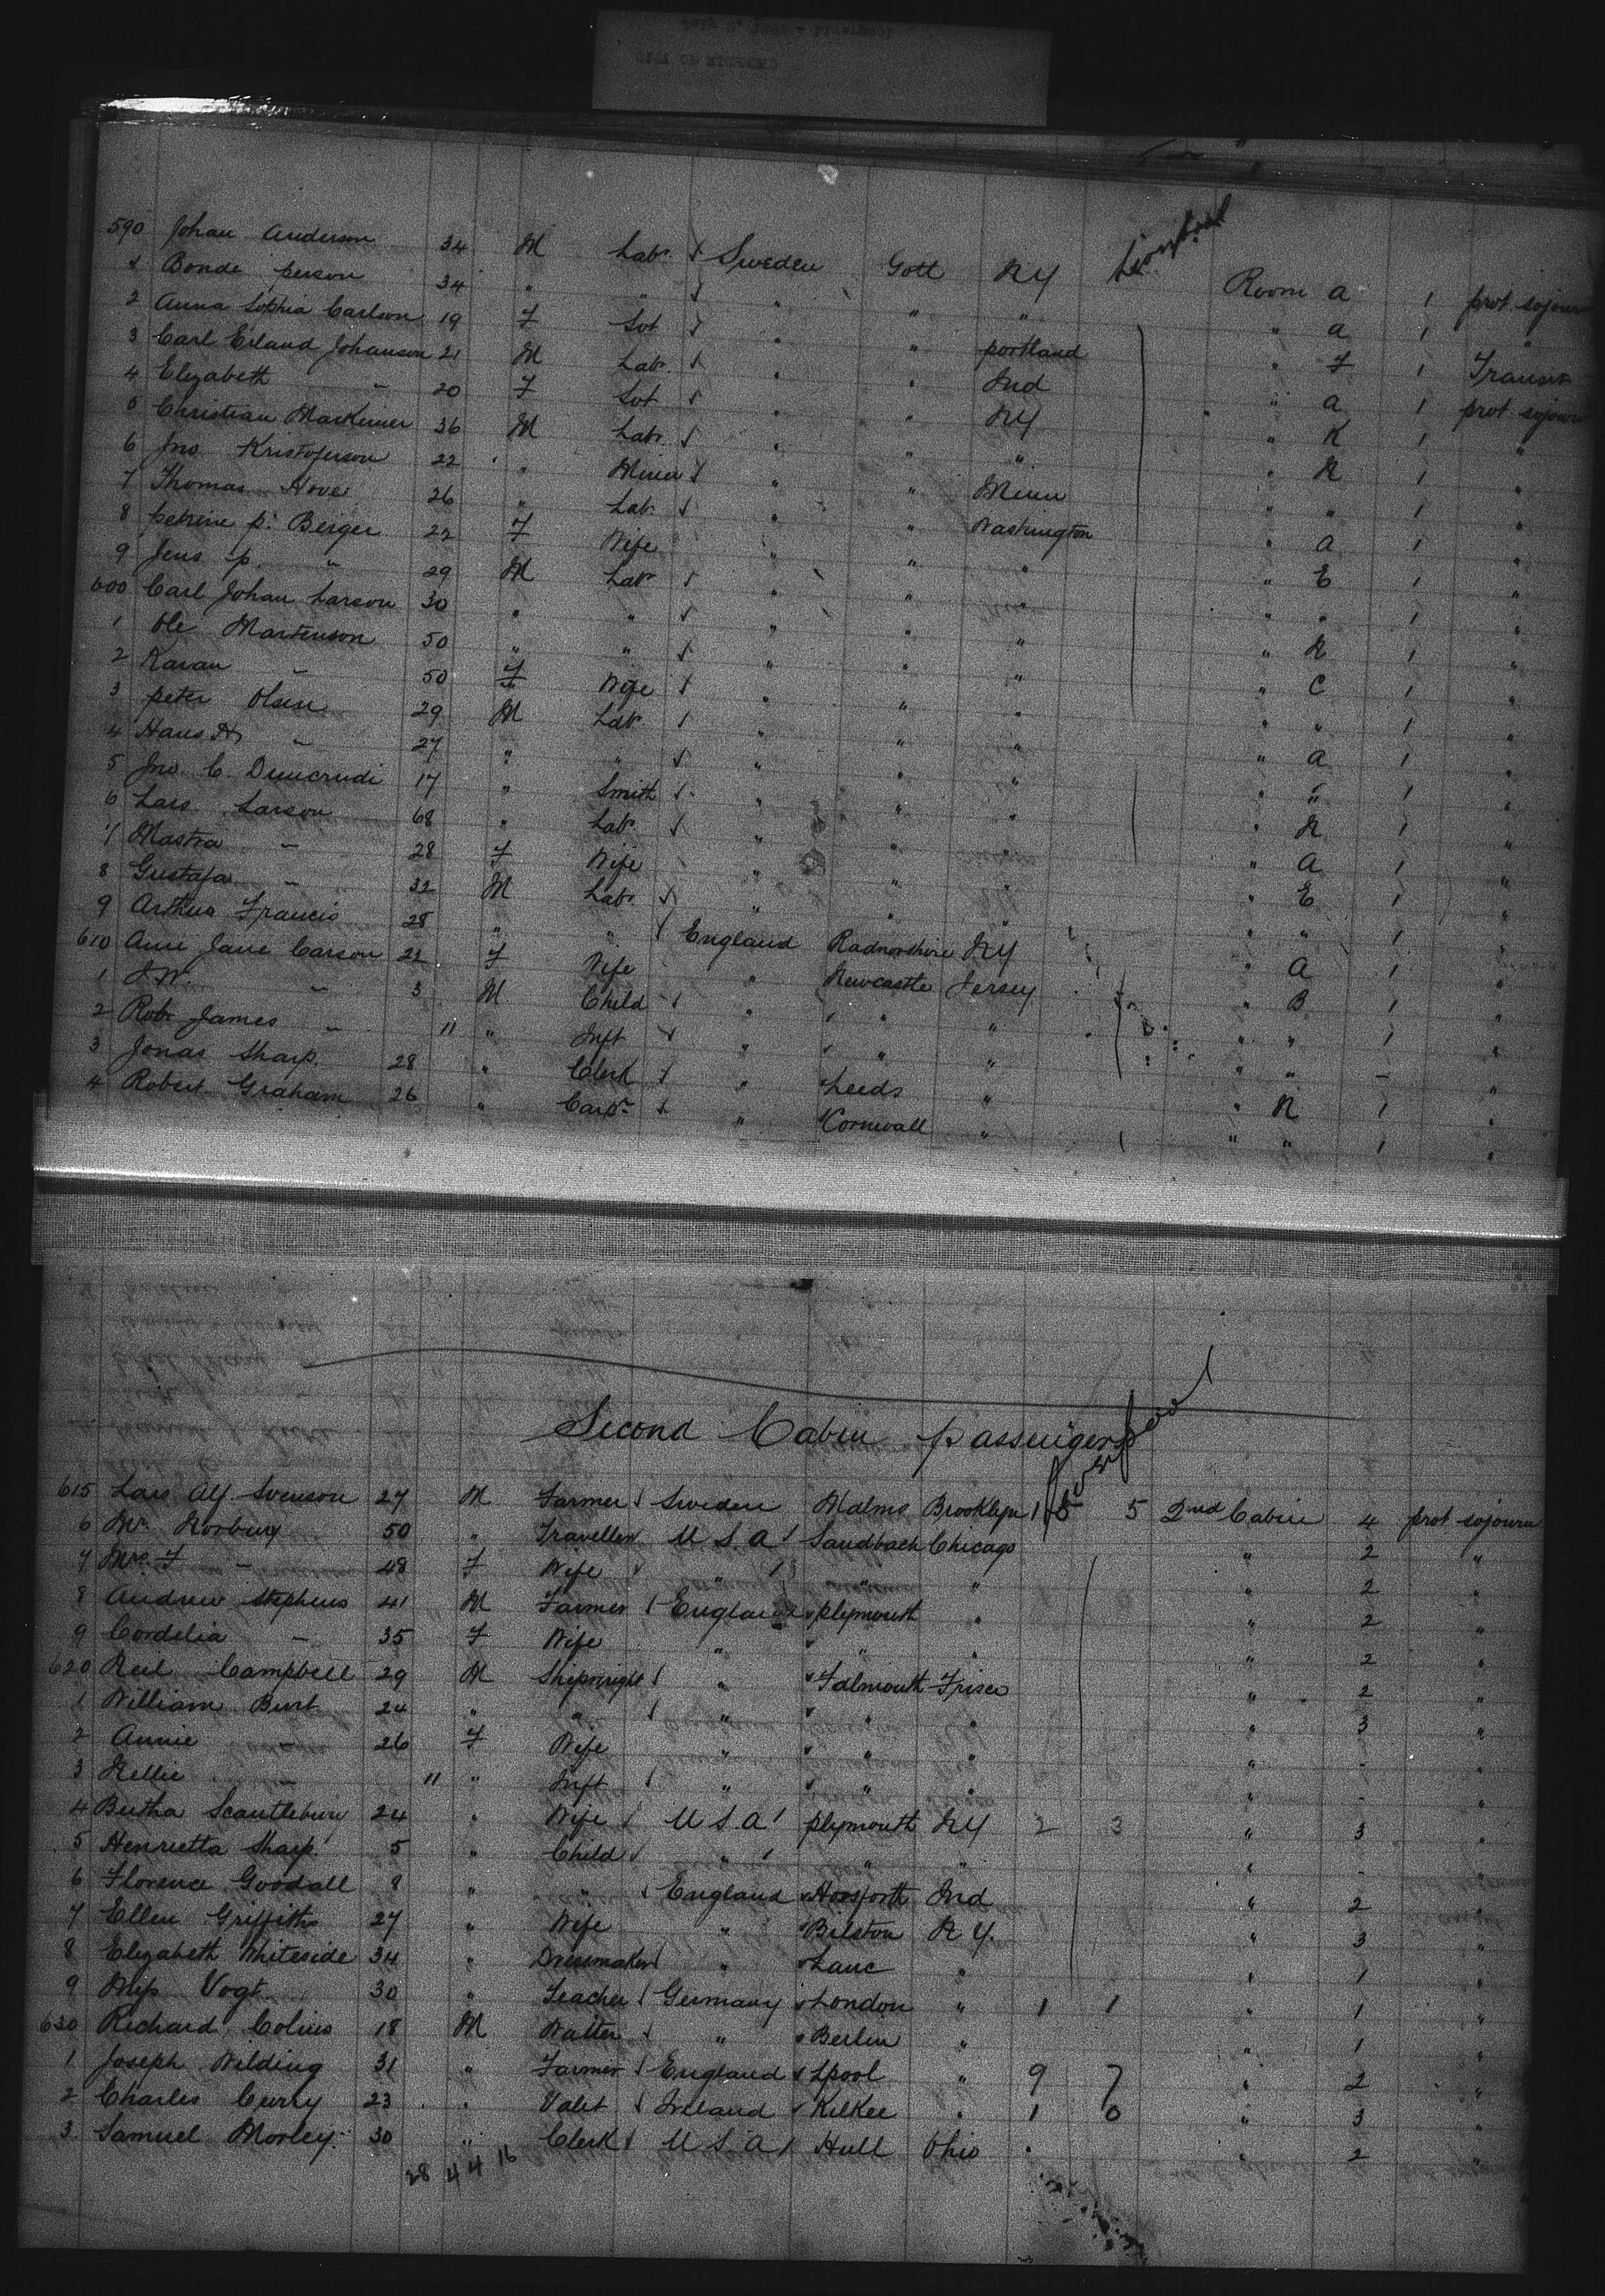 590 Johan Anderson 34 M Labr Sweden Gott NY Liverpool Room A 1 prot sojourn
1 Bonde person 34 " " " " " " A 1 "
2 Anna Sophia Carlson 19 F Svt " " portland " F 1 Transit
3 Carl Erland Johanson 21 M Labr " " Ind " A 1 prot sojourn
4 Elizabeth " 20 F Svt " " NY " K 1 "
5 Christian 36 M Labr " " " " K 1 "
6 Jno Kristoferson 22 " Miner " " Minn " " 1 "
7 Thomas Hove 26 " Labr " " Washington " A 1 "
8 petrine p. Berger 22 F Wife " " " " E 1 "
9 Jens p. " 29 M Labr " " " " " 1 "
600 Carl Johan Larson 30 " " " " " " K 1 "
1 Ole Martenson 50 " " " " " " C 1 "
2 Karan " 50 F Wife " " " " " 1 "
3 peter Olsen 29 M Labr " " " " A 1 "
4 Hans H " 27 " " " " " " " 1 "
5 Jno. C. 17 " Smith " " " " K 1 "
6 Lars Larson 68 " Labr " " " " A 1 "
7 " 28 F Wife " " " " E 1 "
8 Gustafa " 32 M Labr " " " " " 1 "
9 Arthur Francis 28 " " England Radnorshire NY " A 1 "
610 Ann Jane Carson 22 F Wife " Newcastle Jersey " B 1 "
1 J. W. " 3 M Child " " " " " 1 "
2 Robt James " 11 " Inft " " " " " - "
3 Jonas Sharp. 28 " Clerk " Leeds " " K 1 "
4 Robert Graham 26 " Carpr " Cornwall " " " 1 "
Second Cabin passengers
Liverpool
615 Lars Alf. Svenson 27 M Farmer Sweden Malmo Brooklyn 5 2nd Cabin 4 prot sojourn
6 Mr. Roxbury 50 " Traveller U S A Sandbach Chicago " 2 "
7 Mrs. F - 48 F Wife " " " " 2 "
8 Andrew Stephens 41 M Farmer England plymouth " " 2 "
9 Cordelia - 35 F Wife " " " " 2 "
620 Neil Campbell 29 M Shipwright " Falmouth Frisco " 2 "
1 William Burt 24 " " " " " " 3 "
2 Annie - 26 F Wife " " " " - "
3 Nellie - 11 " Inft " " " " - "
4 Bertha Scantlebury 24 " Wife U S A plymouth NY 2 3 " 3 "
5 Henrietta Sharp. 5 " Child " " " " - "
6 Florence Goodall 8 " " England Horsforth Ind " 2 "
7 Ellen Griffiths 27 " Wife " Bilston N Y. " 3 "
8 Elizabeth Whiteside 34 " Dressmaker " Lanc " " 1 "
9 Miss Vogt 30 " Teacher Germany London " 1 1 " 1 "
630 Richard Colins 18 M Waiter " Berlin " " 1 "
1 Joseph Wilding 31 " Farmer England Lpool " 9 7 " 2 "
2 Charles Curry 23 " Valet Ireland Kilkee " 1 0 " 3 "
3 Samuel Morley. 30 " Clerk U S A Hull Ohio " 2 "
28 4 4 16